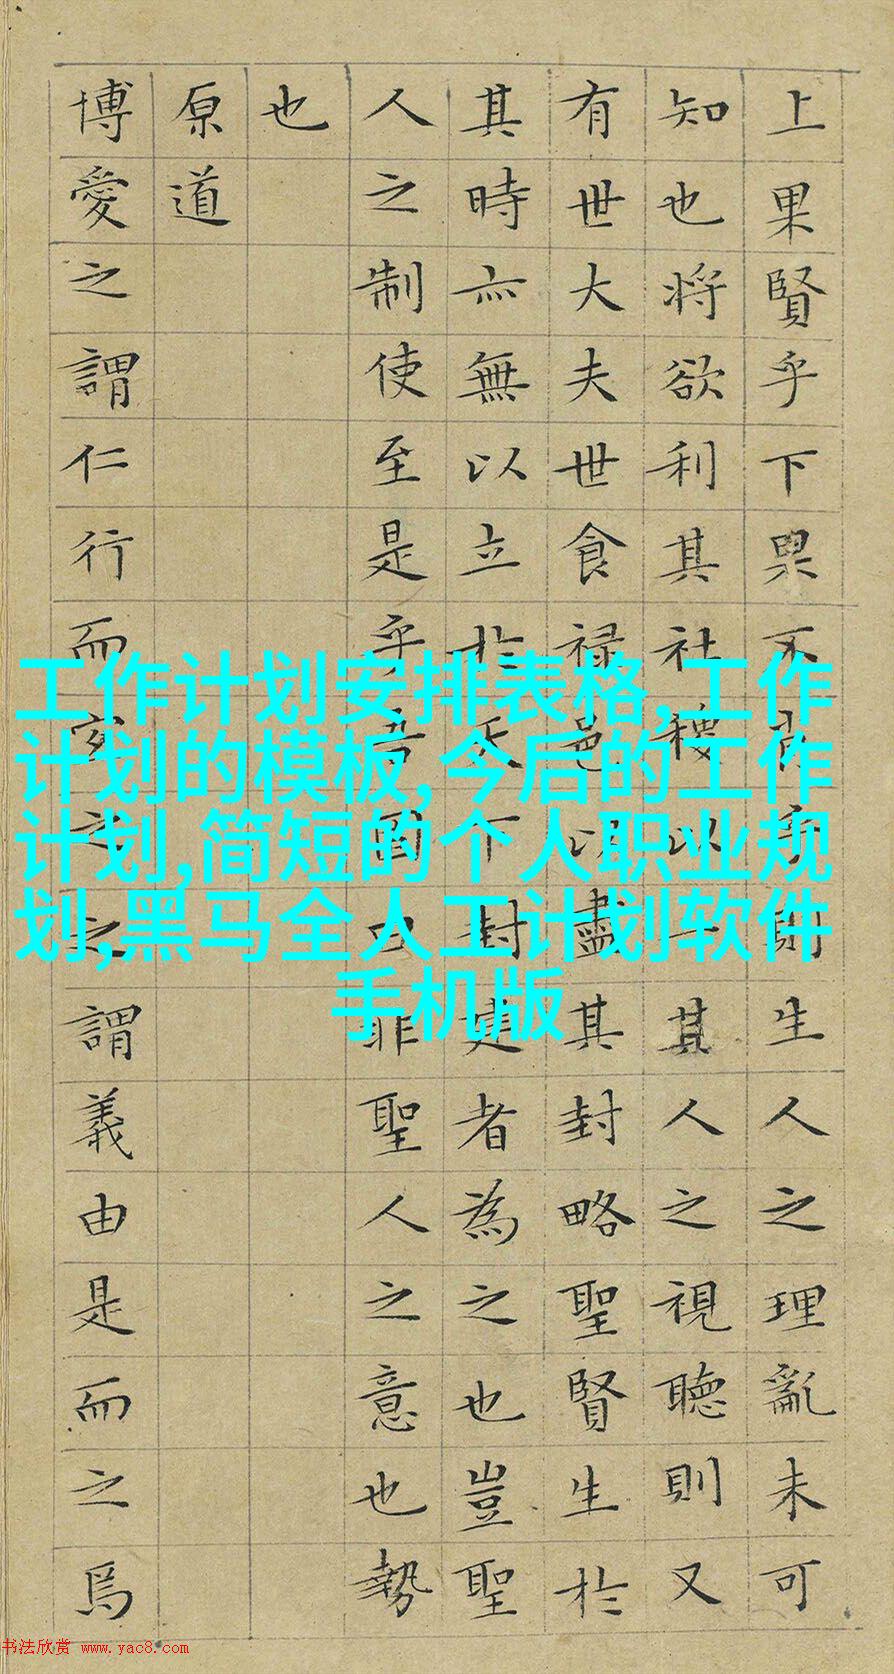 上果賢乎下果不肖乎則生人之理亂未可
知也將欲利其社稷以一其人之視聽則又
有世大夫世食禄邑以盡其封略聖賢生於
其時亦無以立於天下封建者為之也豈聖
人之制使至是乎吾固曰非聖人之意也勢
也
原道
博愛之謂仁行而宜之之謂義由是而之焉
工作计划安排表格,工作
计划的模板,今后的工作
计划,简短的个人职业规
划,黑马全人工计划软件
手机版
书法欣赏 www.yac8.com